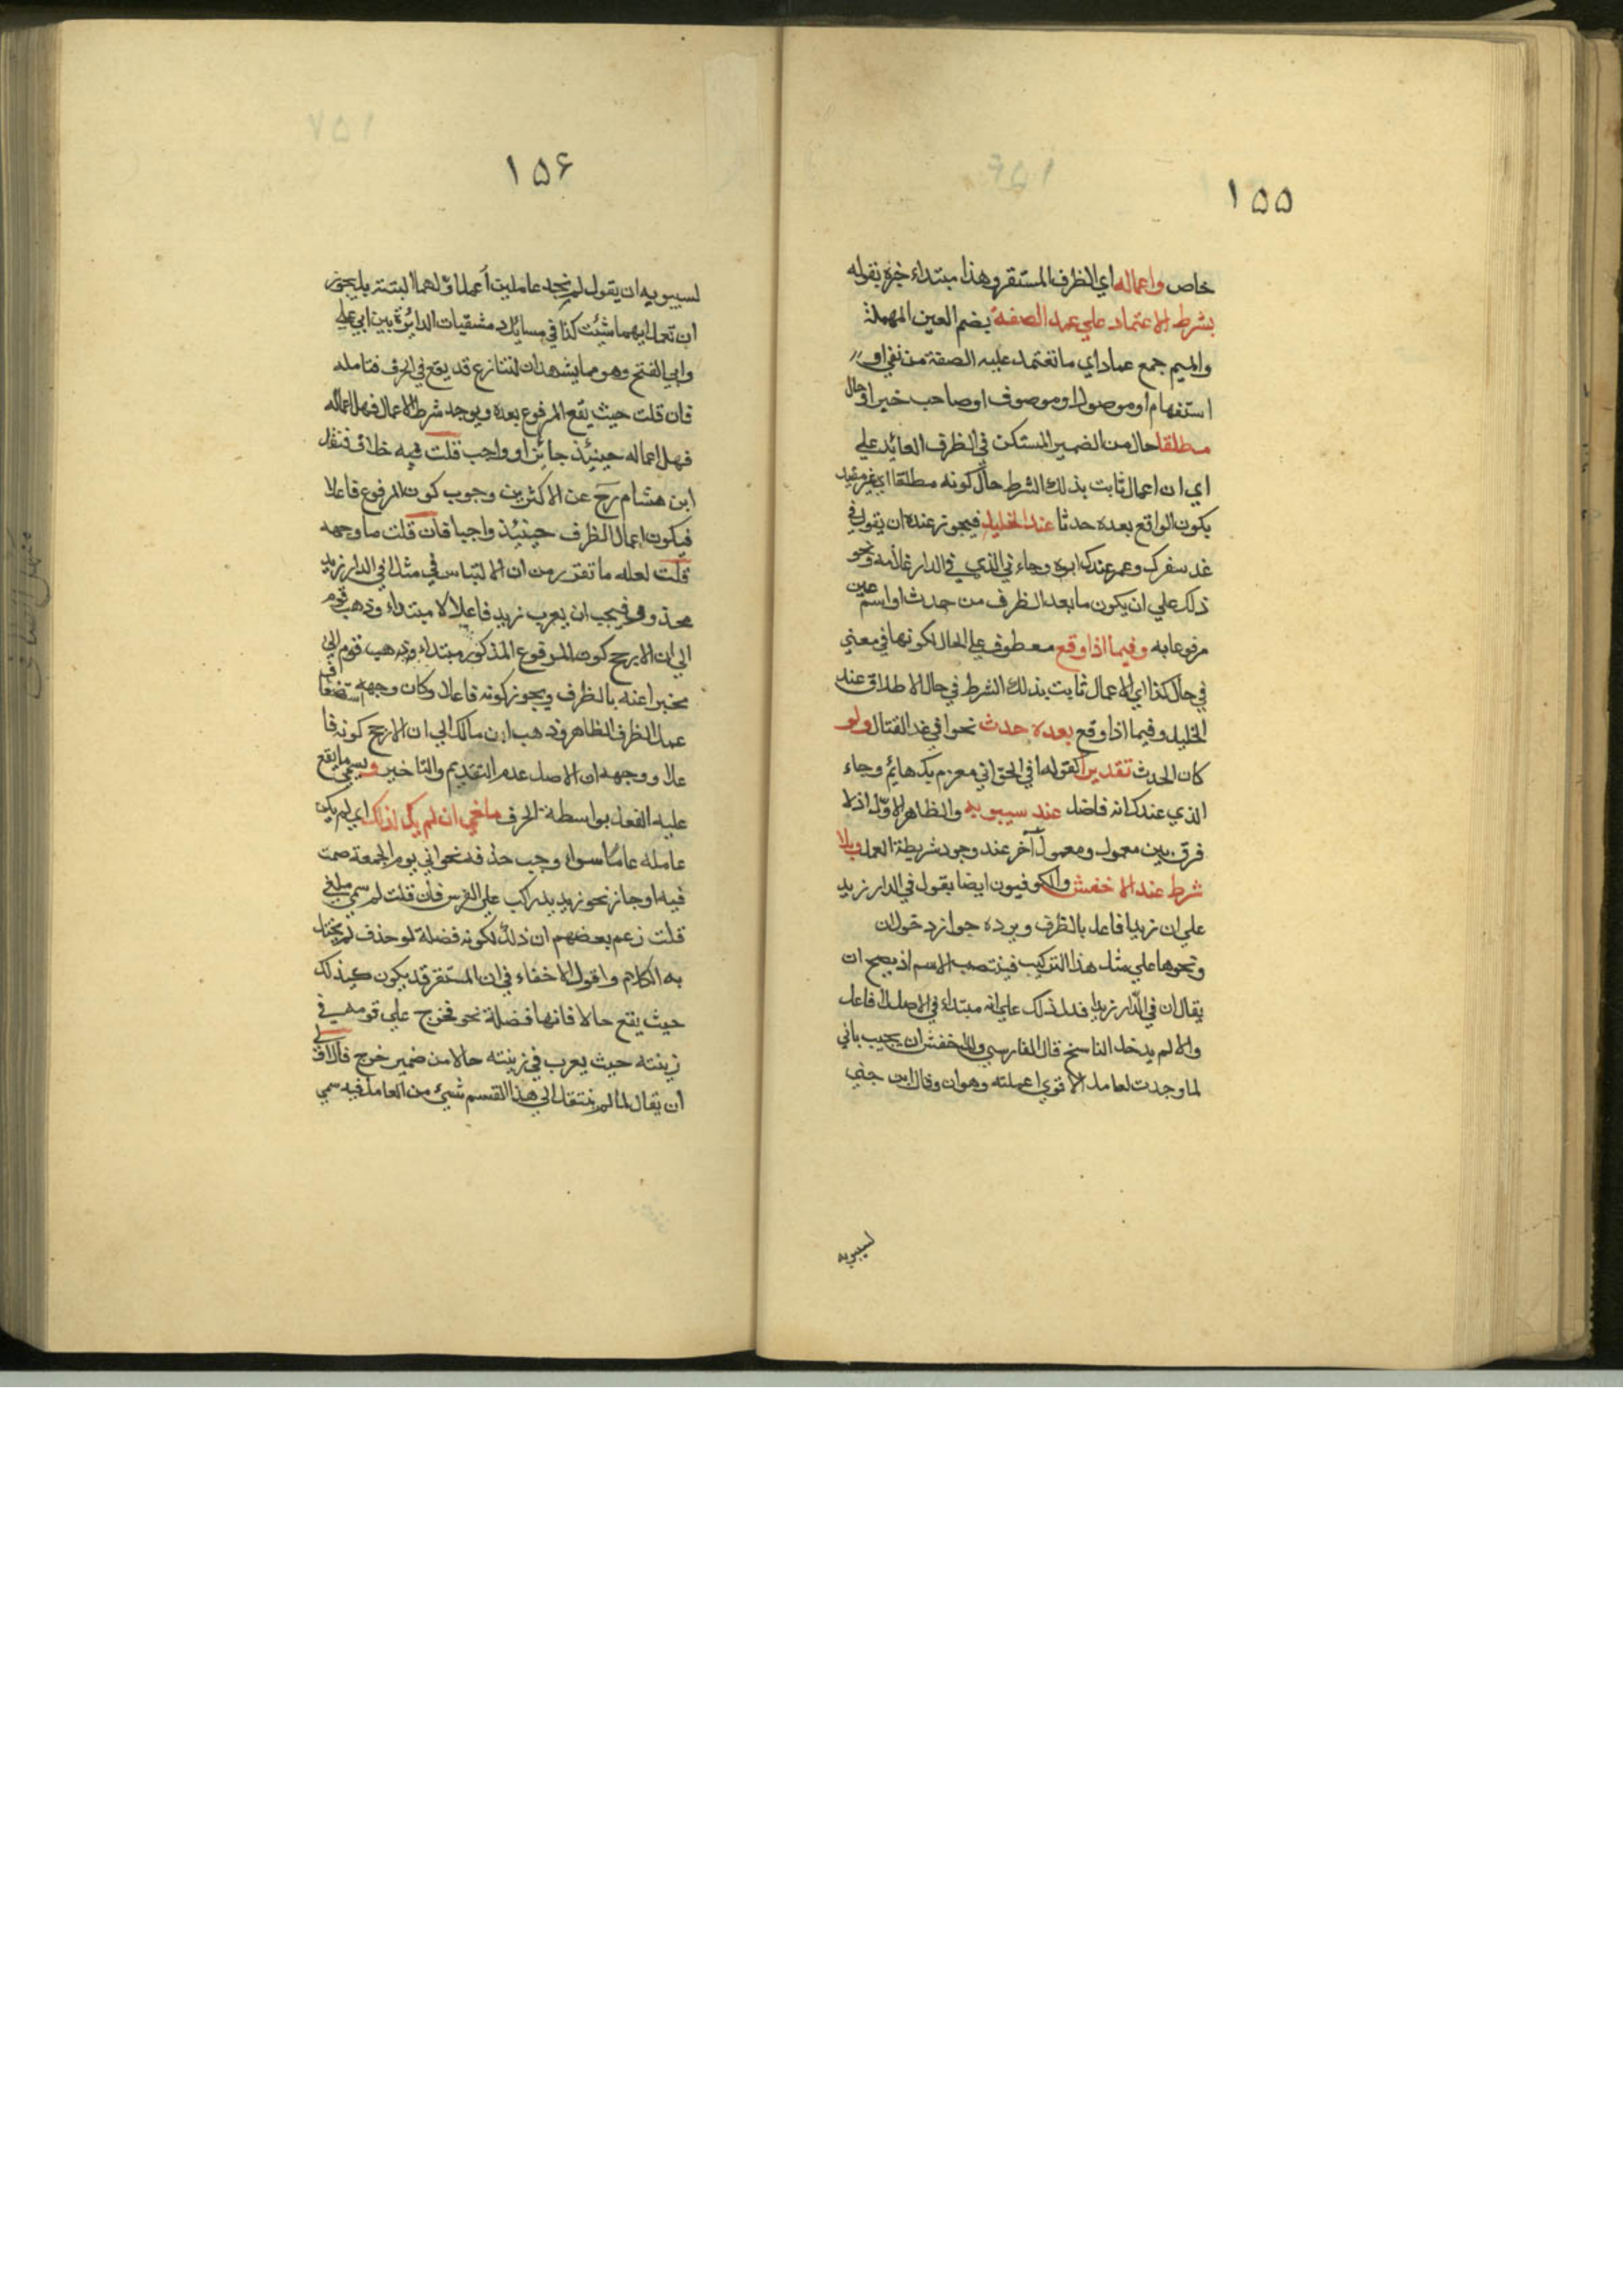 ١٥٥
خاص واعماله اي الظرف المستقر وهذا مبتداء خبره بقوله
بشرط الاعتماد علي عمد الصفة بضم العين المهملة
والميم جمع عماد اي ما تعتمد عليه الصفة من نفي او
استفهام او موصول او موصوف او صاحب خبر او حال
مطلقا حال من الضمير المستكن في الظرف العائد علي
اي ان اعمال ثابت بذلك الشرط حال كونه مطلقا اي غير مقيد
يكون الواقع بعده حدثا عند الخليل فيجوز عنده ان يقول في
غد سفرك وعمر عندك ابوه وجاء ني الذي في الدار غلامه ونحو
ذلك علي ان يكون ما بعد الظرف من حدث او اسم عين
مرفوعا به وفيما اذا وقع معطوف علي الحال لكونها في معني
في حال كذا اي الاعمال ثابت بذلك الشرط في حال الاطلاق عند
الخليل وفيما اذا وقع بعده حدث نحو افي غد القتال ولو
كان الحدث تقديرا كقوله افي الحق اني مغرم بك هائم وجاء
الذي عندك انه فاضل عند سيبويه والظاهر الاول اذ لا
فرق بين معمول ومعمول آخر عند وجود شريطة العمل وبلا
شرط عند الاخفش والكوفيون ايضا يقول في الدار زيد
علي ان زيدا فاعل بالظرف ويرده جواز دخول ان
ونحوها علي مثل هذا التركيب فينتصب الاسم اذ يصح ان
يقال ان في الدار زيدا فدل ذلك علي انه مبتداء في الاصل لا فاعل
والا لم يدخل الناسخ قال الفارسي وللاخفش ان يجيب باني
لما وجدت لعامل الاقوي اعملته وهو ان وقال ابن جني
لسيبويه
١٥۶
لسيبويه ان يقول لم نجد عاملين أعملا ؤلهما البتة بل يجوز
ان تعمل ايهما شئت كذا في مسائل دمشقيات الدائرة بين ابي علي
وابي الفتح وهو مما يشهد ان التنازع قد يقع في الحرف فتامله
فان قلت حيث يقع المرفوع بعده ويوجد شرط الاعمال فهل اعماله
فهل اعماله حينئذ جائز او واجب قلت فيه خلاف فنقل
ابن هشام رح عن الاكثرين وجوب كون المرفوع فاعلا
فيكون اعمال الظرف حينئذ واجبا فان قلت ما وجهه
قلت لعله ما تقرر من ان الالتباس في مثل افي الدار زيد
محذور فيجب ان يعرب زيد فاعلا لا مبتداء وذهب قوم
الي ان الارجح كون المرفوع المذكور مبتداء وذهب قوم الي
مخبرا عنه بالظرف ويجوز كونه فاعلا وكان وجهه استضعاف
عمل الظرف الظاهر وذهب ابن مالك الي ان الارجح كونه فا
علا ووجهه ان الاصل عدم التقديم والتاخير ويسمي ما يقع
عليه الفعل بواسطة الحرف ملغي ان لم يكن كذلك اي لم يكن
عامله عاما سواء وجب حذفه نحو اني يوم الجمعة صمت
فيه او جاز نحو زيد يدركب علي الفرس فان قلت لم سمي ملغي
قلت زعم بعضهم ان ذلك لكونه فضلة لو حذف لم يختل
به الكلام واقول لا خفاء في ان المستقر قد يكون كذلك
حيث يقع حالا فانها فضلة نحو فخرج علي قومه في
زينته حيث يعرب في زينته حالا من ضمير خرج فالاولي
أن يقال لما لم ينتقل الي هذا القسم شيئ من العامل فيه سمي